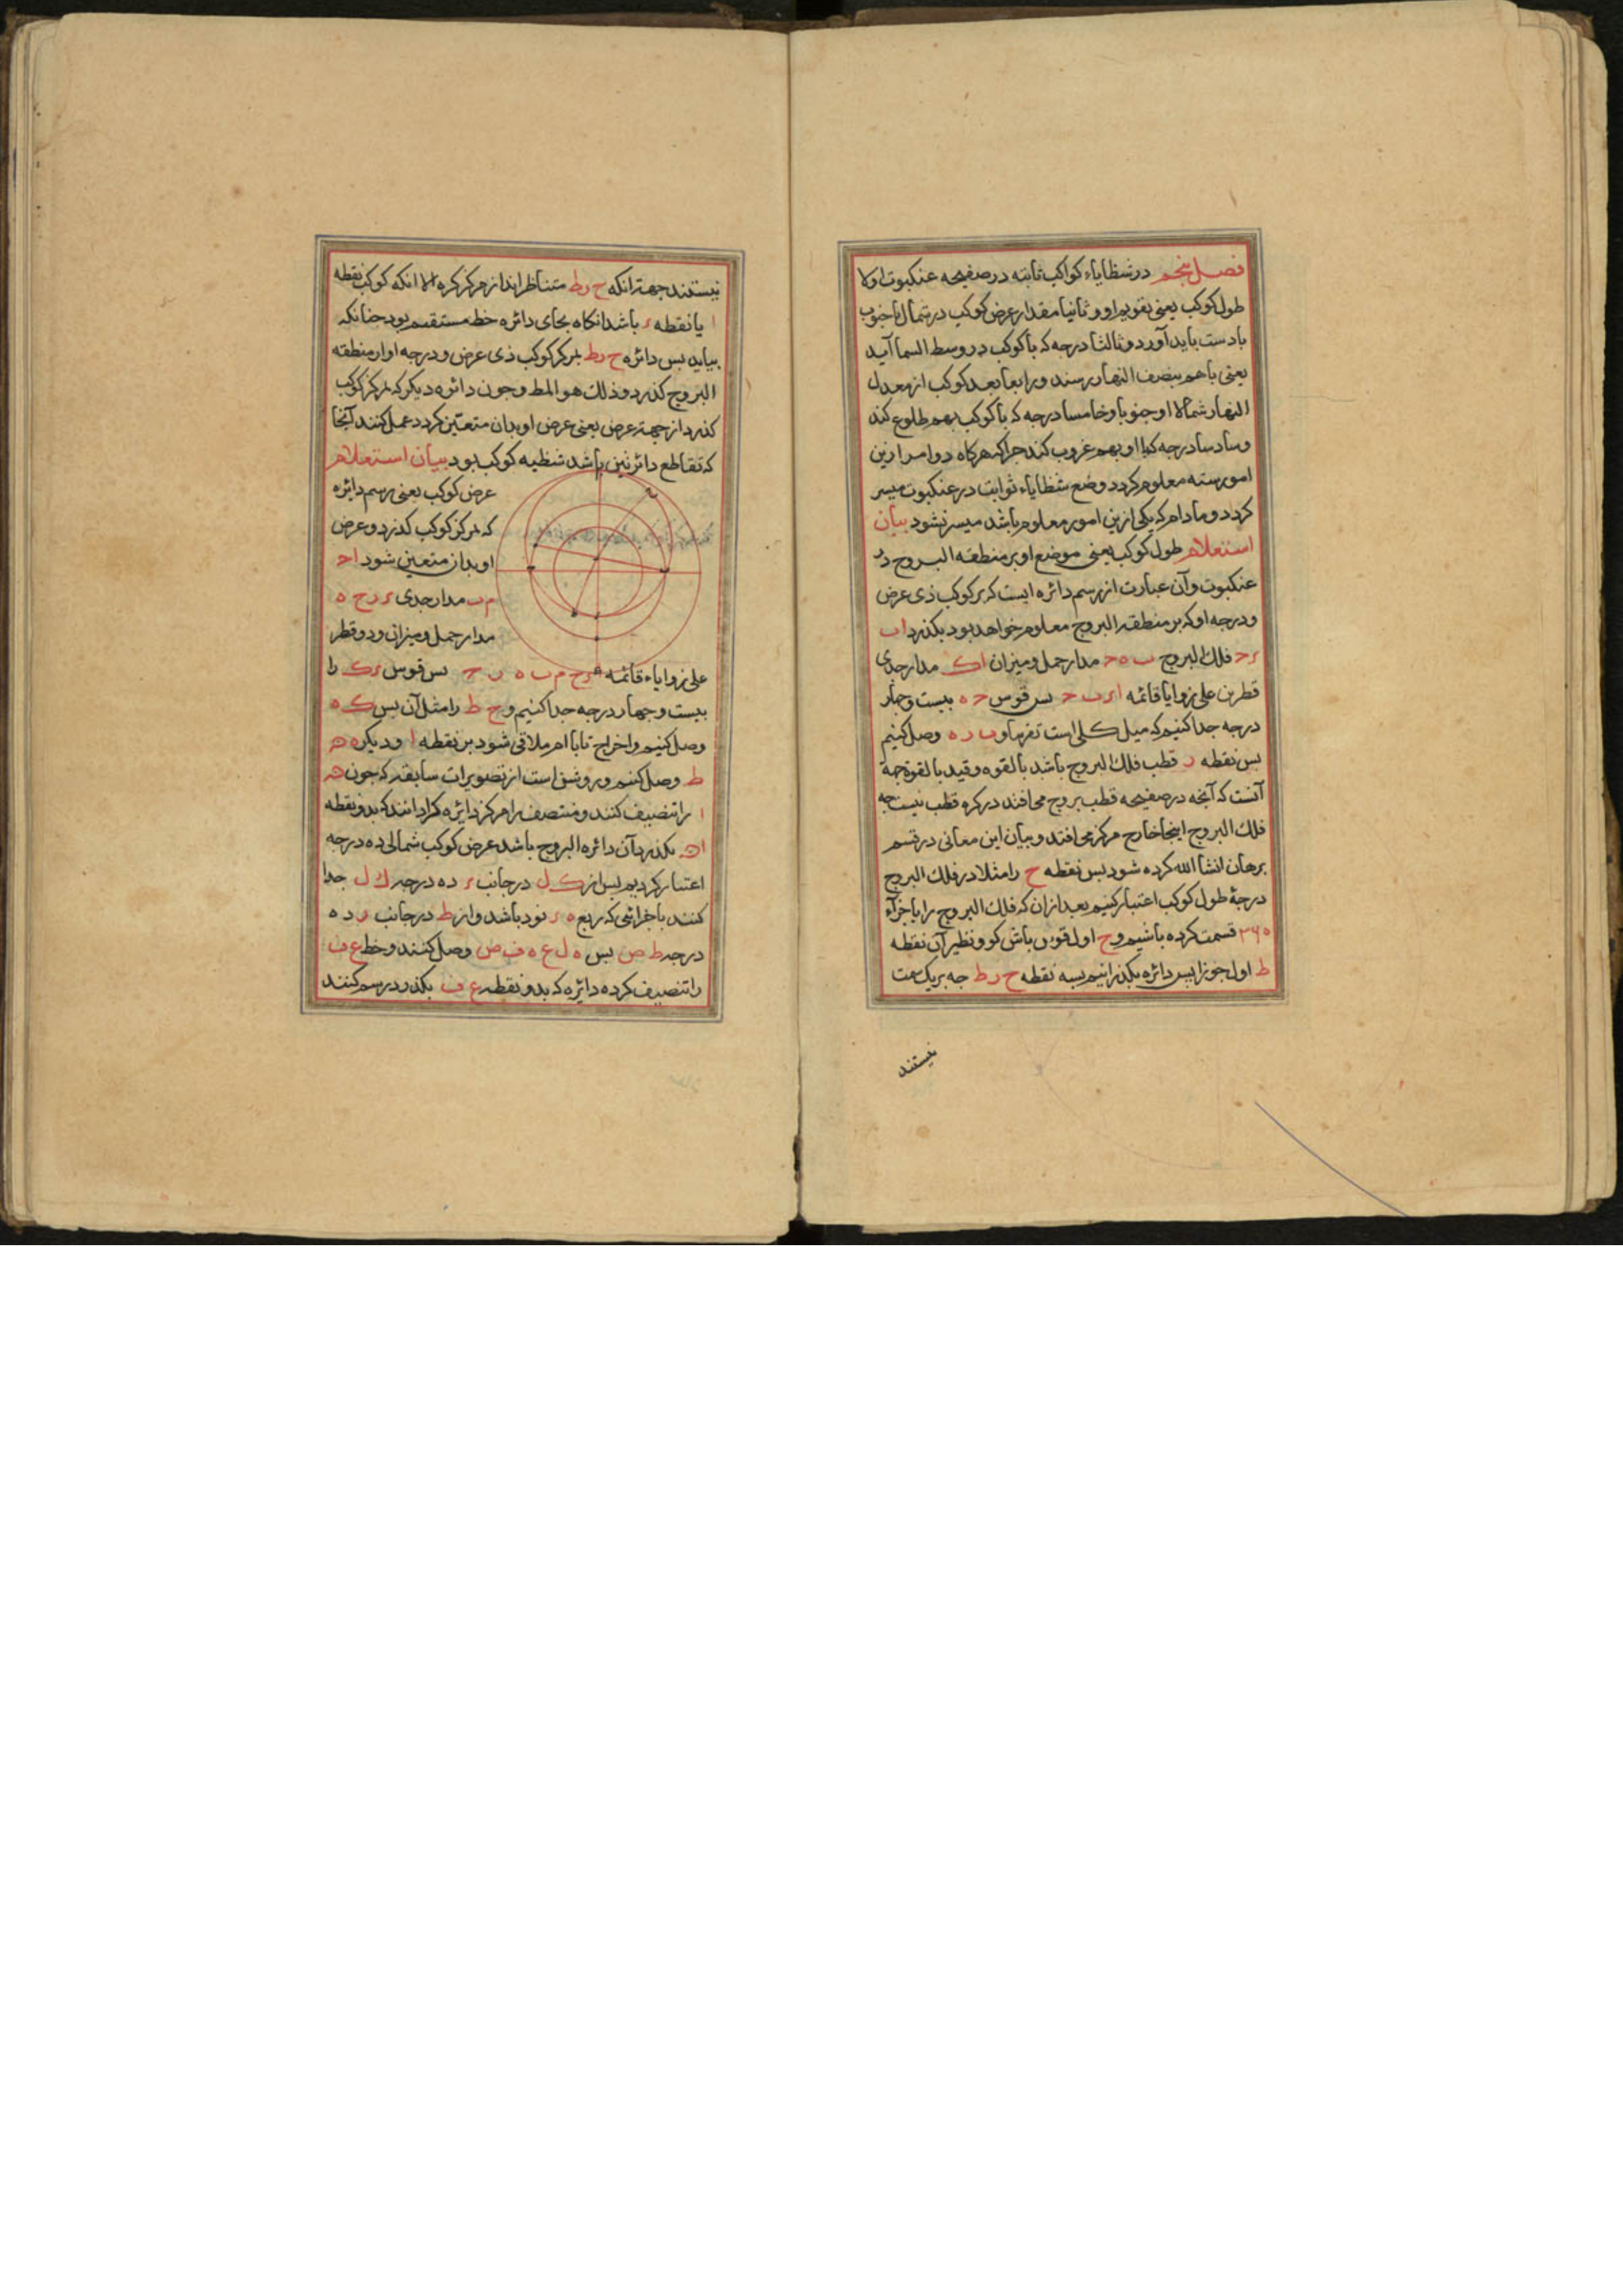 فصل پنجم در شظایاء کواکب ثابته در صفیحه عنکبوت اولا
طول کوکب یعنی تقویم او و ثانیا مقدار عرض کوکب در شمال یا جنوب
بادست باید آورد و ثالثا درجه که با کوکب در وسط السما آید
یعنی با هم بنصف النهار رسند و رابعا بعد کوکب از معدل
النهار شمالا او جنوبا و خامسا درجه که با کوکب بهم طلوع کند
و سادسا درجه که با او بهم غروب کند چرا که هرکاه دو امر ازین
امور سته معلوم کردد وضع شظایاء ثوابت در عنکبوت میسر
کردد و مادام که یکی ازین امور معلوم باشد میسر نشود بیان
استعلام طول کوکب یعنی موضع او بر منطقه البروج در
عنکبوت و آن عبارت از رسم دائره ایست که بر کوکب ذی عرض
و درجه او که بر منطقه البروج معلوم خواهد بود بکذرد ا ب
ء ح فلک البروج ب ه ح مدار حمل و میزان ا ک مدار جدی
قطرین علی زوایا قائمه ا ء ب ح پس قوس ح ه بیست و چهار
درجه جدا کنیم که میل کلی است تقریبا و ب ر ه وصل کنیم
پس نقطه ر قطب فلک البروج باشد بالقوه و قید بالقوة جهة
آنست که آنچه در صفیحه قطب بروج می افتد در کره قطب نیست چه
فلک البروج اینجا خارج مرکز می افتد و بیان این معانی در قسم
برهان انشا الله کرده شود پس نقطه ح را مثلا در فلک البروج
درجهٔ طول کوکب اعتبار کنیم بعد از آن که فلک البروج را باجزاء
۳۶۰ قسمت کرده باشیم و ح اول قوس باش کو و نظیر آن نقطه
ط اول جوزا پس دائره بکذرانیم بسه نقطه ح ر ط چه بریک سمت
نیستند
نیستند جهت انکه ح ر ط متناظر اند از مرکز کره الا انکه کوکب نقطه
ا یا نقطه ء باشد انکاه بجای دائره خط مستقیم بود چنانکه
بیاید پس دائره ح ر ط بمرکز کوکب ذی عرض و درجه او از منطقه
البروج کذرد و ذلک هو المط و چون دائره دیکر که بمرکز کوکب
کذرد از جهة عرض یعنی عرض او بدان متعین کردد عمل کنند آنجا
که تقاطع دائرتین باشد شظیه کوکب بود بیان استعلام
عرض کوکب یعنی رسم دائره
که بمرکز کوکب کذرد و عرض
او بدان متعین شود ا ح
م ب مدار جدی ء ر ح ه
مدار حمل و میزان و دو قطر
علی زوایاء قائمه ء ح م ب ه ر ح پس قوس ء ک را
بیست و چهار درجه جدا کنیم و ح ط را مثل آن پس ک ه
وصل کنیم و اخراج تا با ا م ملاقی شود بر نقطه ا و دیکر ه
ط وصل کنیم و روشن است از تصویرات سابقه که چون
ا را تنصیف کنند و منتصف را مرکز دائره کردانند که بدو نقطه
ا بکذرد آن دائره البروج باشد عرض کوکب شمالی ده درجه
اعتبار کردیم پس از ک ل در جانب ء ده درجه ک ل جدا
کنند باجزائی که ربع ه ء نود باشد و از ط در جانب ر ده
درجه ط ص پس ه ل ع ه ف ص وصل کنند و خط ع ف
را تنصیف کرده دائره که بدو نقطه ع ف بکذرد رسم کنند